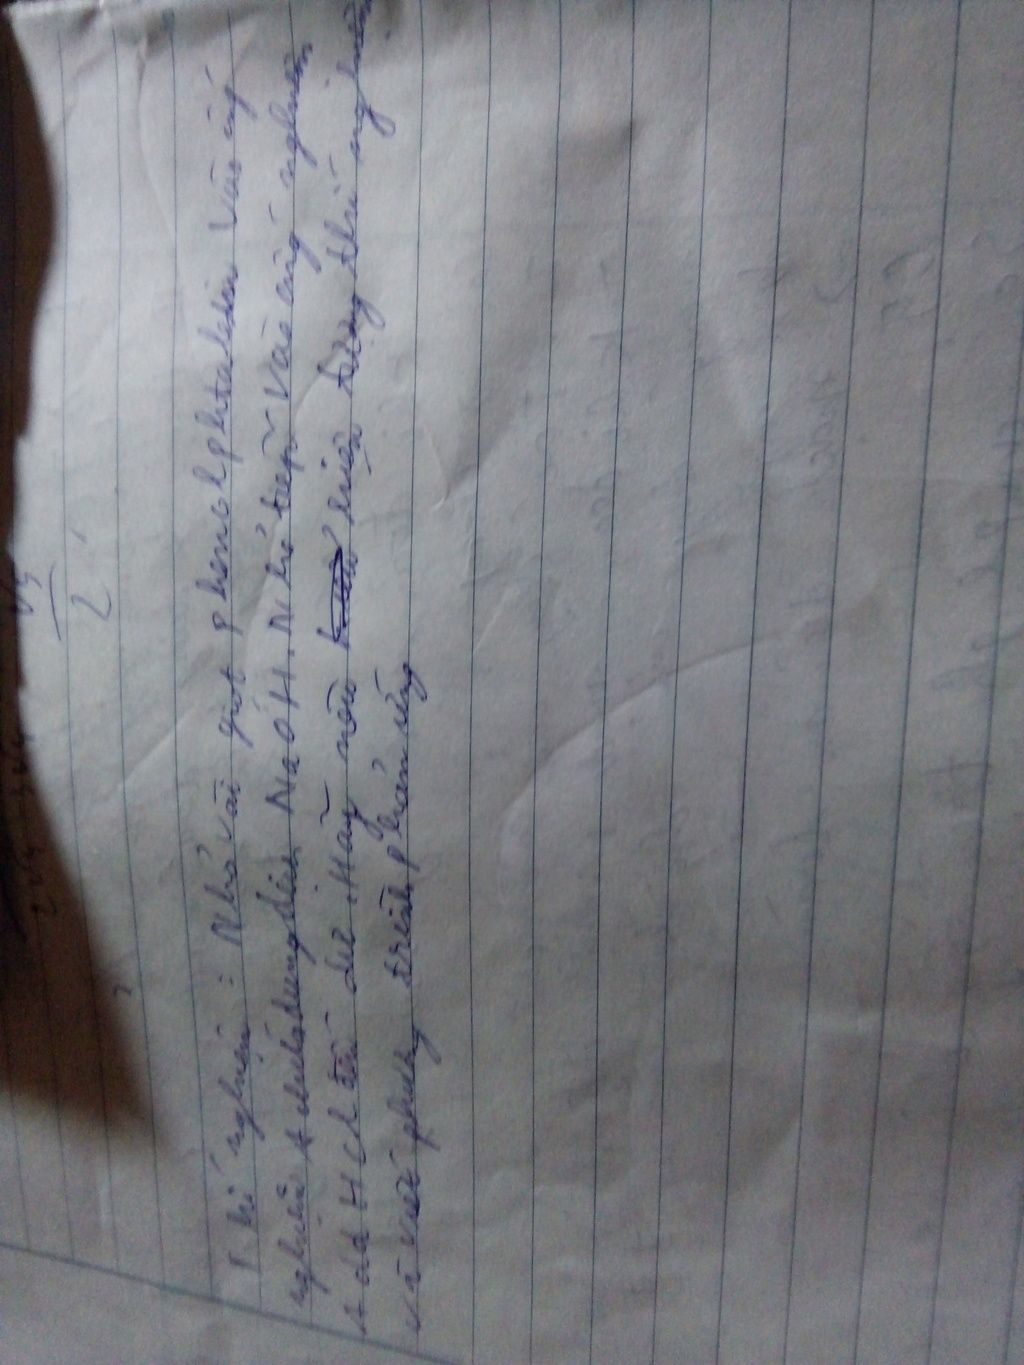 Thí nghiệm: Nhỏ vài giọt phenolphtalein vào ống
nghiệm A chứa dung dịch NaOH. Nhỏ tiếp vào ống nghiệm
A dd HCl đến dư. Hãy nêu hiện tượng thí nghiệm
và viết phương trình phản ứng
2